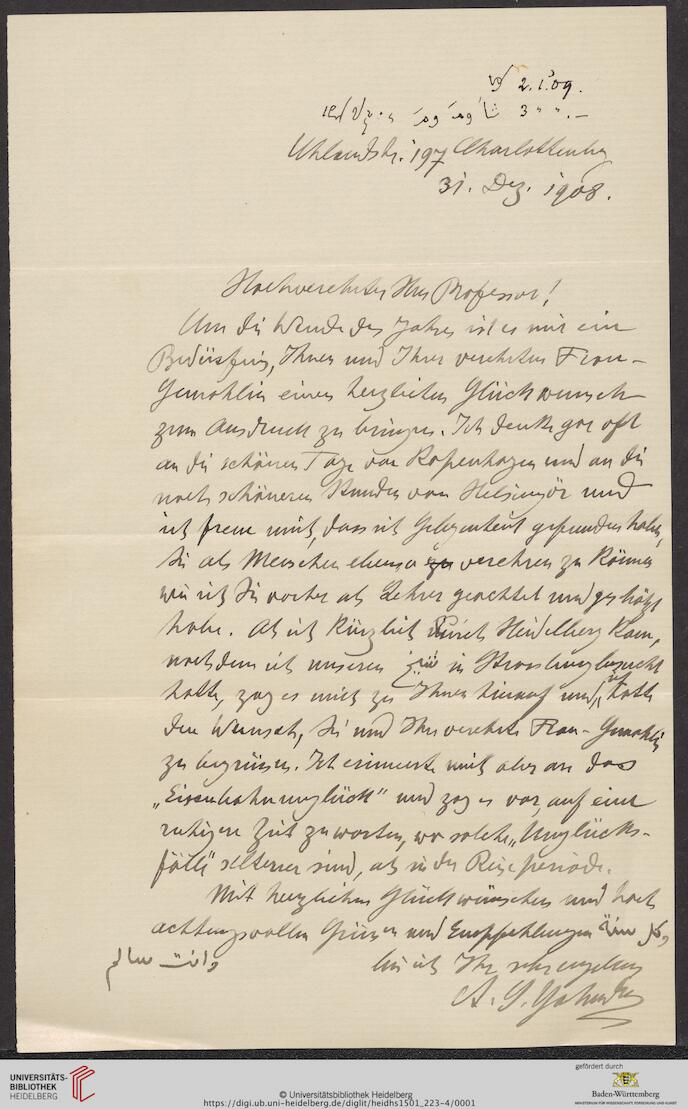 2.1.09.
3 " ".–
Uhlandstr. 197 Charlottenburg
31. Dez. 1908.
Hochverehrter Herr Professor!
Um die Wende des Jahres ist es mir ein
Bedürfnis, Ihnen und Ihrer verehrten Frau-
Gemahlin einen herzlichen Glückwunsch
zum Ausdruck zu bringen. Ich denke gar oft
an die schönen Tage von Kopenhagen und an die
noch schöneren Stunden von Helsingör und
ich freue mich, dass ich Gelegenheit gefunden habe,
Sie als Menschen ebenso verehren zu können
wie ich Sie vorher als Lehrer geachtet und geschätzt
habe. Als ich kürzlich durch Heidelberg kam,
nachdem ich unseren in Strassburg besucht
hatte, zog es mich zu Ihnen hinauf und ich hatte
den Wunsch, Sie und Ihre verehrte Frau-Gemahlin
zu begrüssen. Ich erinnerte mich aber an das
„Eisenbahnunglück" und zog es vor, auf eine
ruhigere Zeit zu warten, wo solche „Unglücks-
fälle" seltener sind, als in der Reiseperiode.
Mit herzlichen Glückwünschen und hoch
achtungsvollen Grüssen und Empfehlungen
وانت سالم
bin ich Ihr sehr ergebener
A. S. Yahuda
UNIVERSITÄTS-
BIBLIOTHEK
HEIDELBERG
© Universitätsbibliothek Heidelberg
https://digi.ub.uni-heidelberg.de/diglit/heidhs1501_223-4/0001
gefördert durch
Baden-Württemberg
MINISTERIUM FÜR WISSENSCHAFT, FORSCHUNG UND KUNST